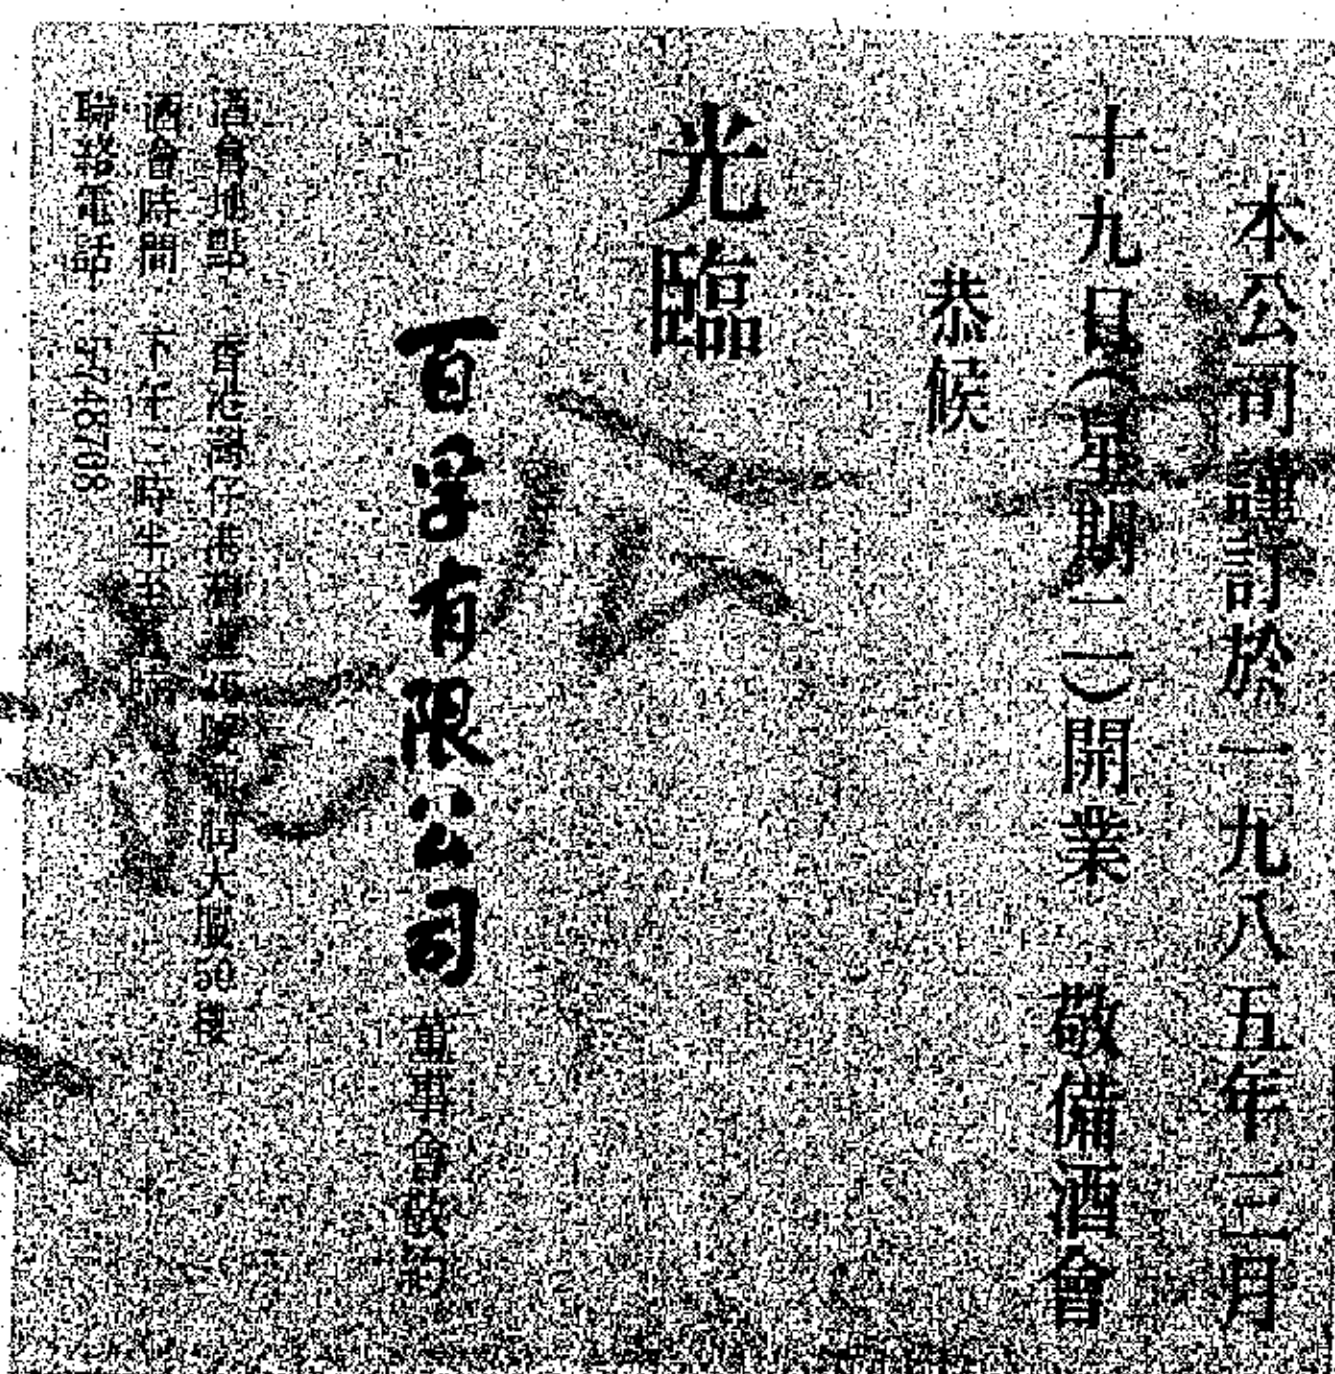 本公司謹訂於一九八五年三月
十九日（星期二）開業　敬備酒會
恭候
光臨
百孚有限公司 董事會敬約
酒會地點 香港灣仔港灣道 大廈50樓
酒會時間 下午三時半至 時
聯絡電話